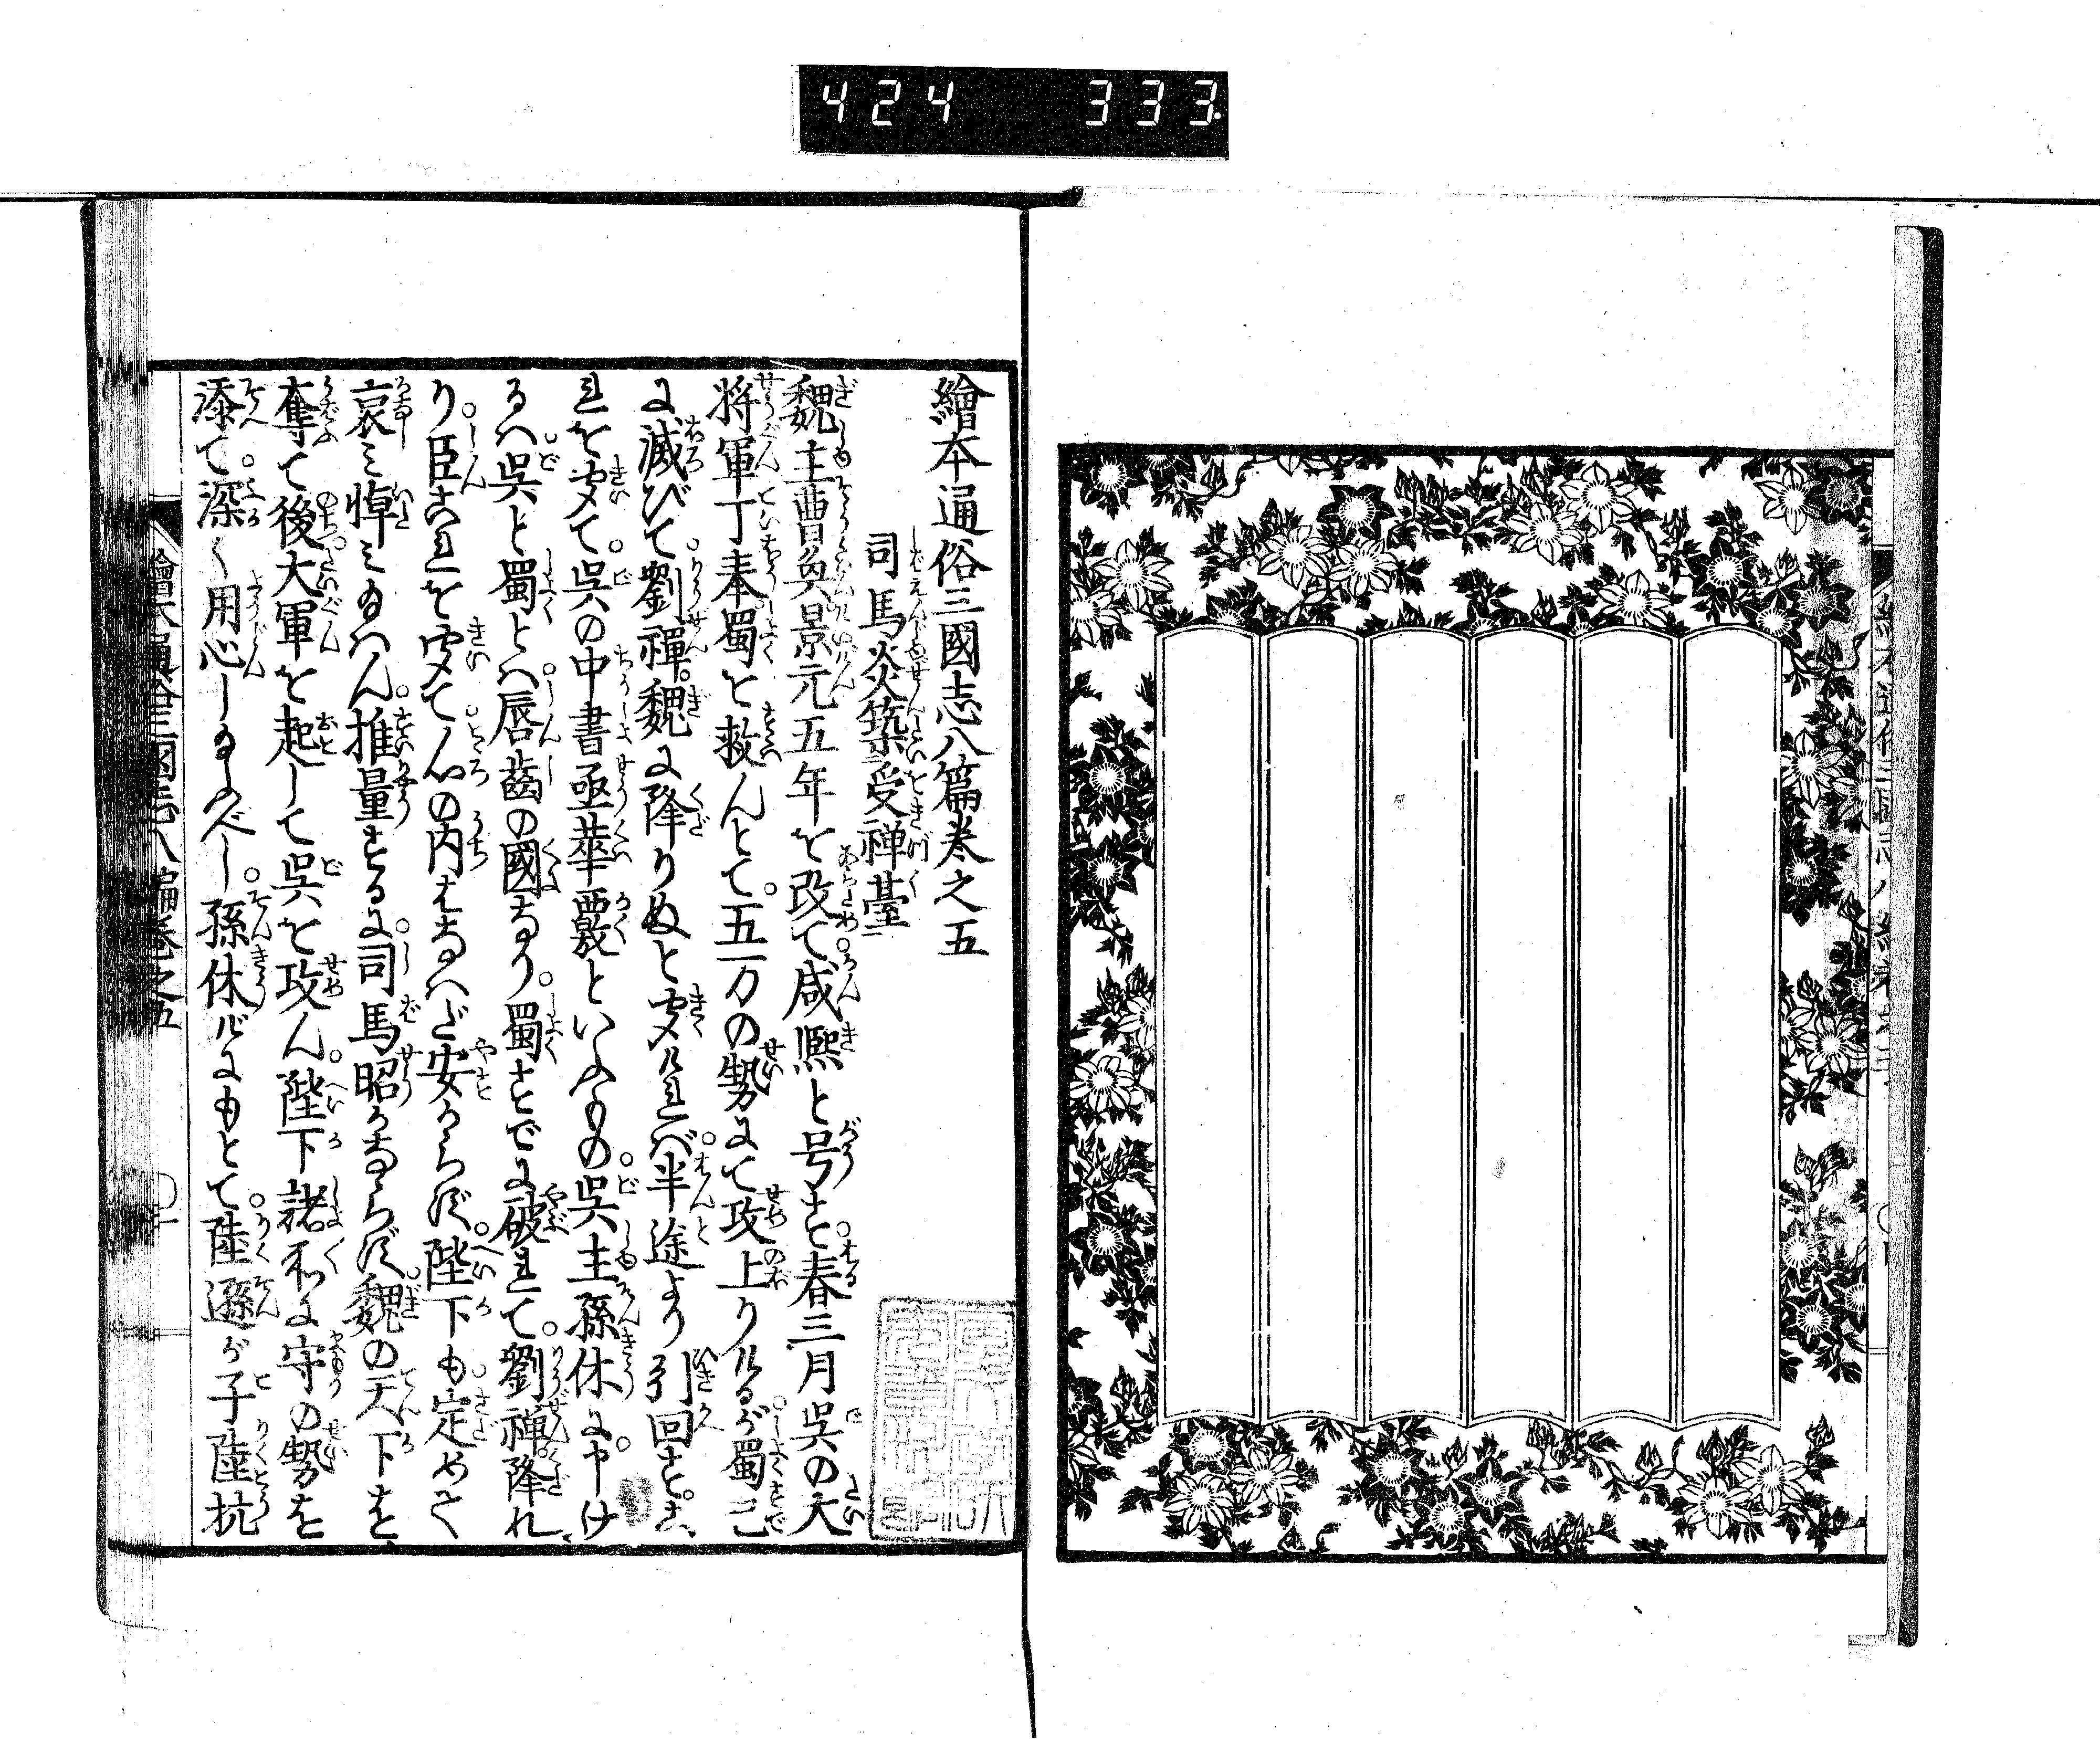 424 333
繪本通俗三國志八篇巻之五
司馬炎築受禅臺
魏主曹奐景元五年を改て咸熙と号す。春三月呉の大
将軍丁奉蜀を救んとて。五万の勢にて攻上りけるが。蜀已
に滅びて。劉禪。魏に降りぬと聞ければ。半途より引回す。こ
れを聞て。呉の中書丞華覈といふもの。呉主孫休に申け
るハ。呉と蜀とハ。唇齒の國なり。蜀すでに破れて。劉禅。降れ
り。臣これを聞て。心の内たちへど安からず。陛下も定めて
哀ミ悼ミ給ハん。推量するに。司馬昭かならず。魏の天下を
奪て後。大軍を起して呉を攻ん。陛下諸我に守の勢を
添て。深く用心し給ふべし。孫休げにもとて。陸遜が子陸抗
繪本通俗三國志八編巻之五